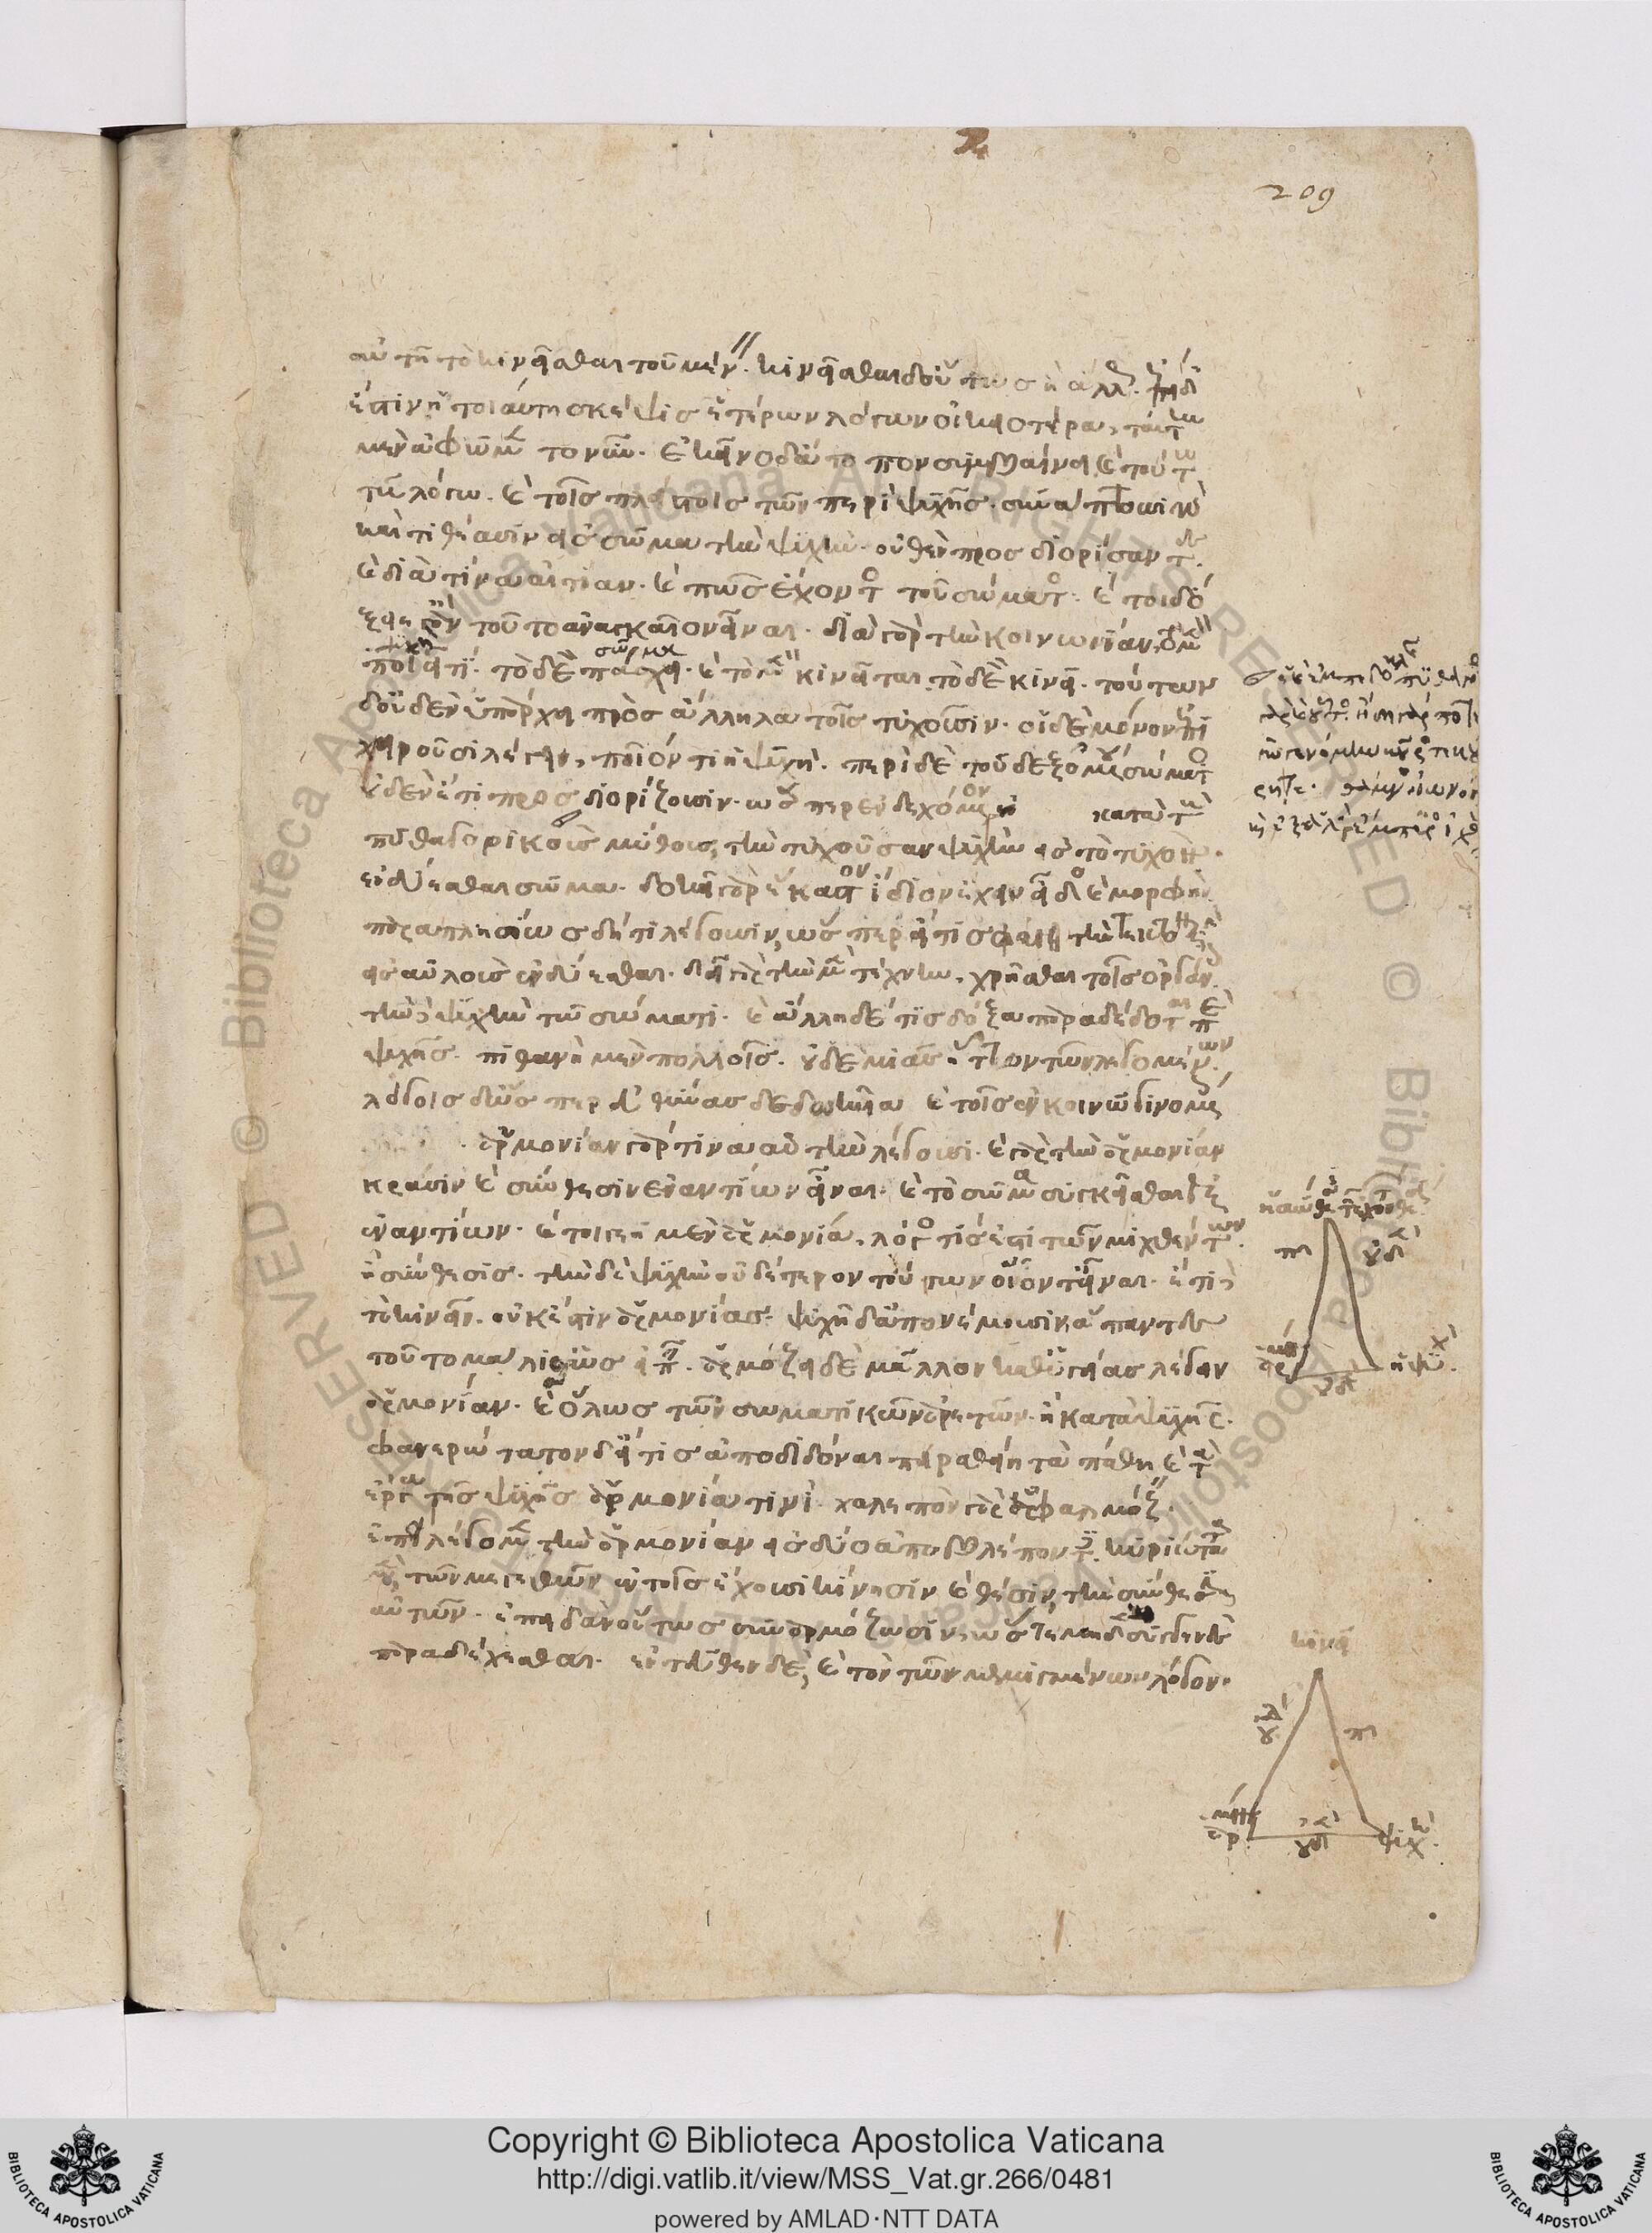 209
αὐτῇ τὸ κινεῖσθαι τοῦ μένειν. κινεῖσθαι δ' οὕτως ἢ ἄλλως. ἐπεὶ δ'
ἐστὶν ἡ τοιαύτη σκέψις ἑτέρων λόγων οἰκειοτέρα, ταύτην
μὲν ἀφῶμεν τὸ νῦν. ἐκεῖνο δ' ἄτοπον συμβαίνει καὶ τούτω
τῷ λόγω. καὶ τοῖς πλείστοις τῶν περὶ ψυχῆς. συνάπτουσι γὰρ
καὶ τιθέασιν εἰς σῶμα τὴν ψυχήν. οὐθὲν προσδιορίσαντες.
καὶ διὰ τίν' αἰτίαν. καὶ πῶς ἔχοντος τοῦ σώματος. καίτοι δό
ξειεν ἂν τοῦτο ἀναγκαῖον εἶναι. διὰ γὰρ τὴν κοινωνίαν, τὸ μὲν
ψυχὴ σῶμα
ποιεῖ τι. τὸ δὲ πάσχει. καὶ τὸ μὲν κινεῖται τὸ δὲ κινεῖ. τούτων
δ' οὐδὲν ὑπάρχει πρὸς ἄλληλα τοῖς τυχοῦσιν. οἱ δὲ μόνον ἐπι
χειροῦσι λέγειν, ποῖόν τι ἡ ψυχή. περὶ δὲ τοῦ δεξομένου σώματος
οὐδὲν ἔτι προσδιορίζουσιν. ὥσπερ ἐνδεχόμενον κατὰ τοὺς
πυθαγορικοὺς μύθους, τὴν τυχοῦσαν ψυχὴν εἰς τὸ τυχὸν.
ἐνδύεσθαι σῶμα. δοκεῖ γὰρ ἕκαστον ἴδιον ἔχειν εἶδος καὶ μορφήν
παραπλησίως δή τι λέγουσιν, ὥσπερ εἴ τις φαίη τὴν τεκτονικὴν
εἰς αὐλοὺς ἐνδύεσθαι. δεῖ γὰρ τὴν μὲν τέχνην. χρῆσθαι τοῖς ὀργάνοις
τὴν δὲ ψυχὴν τῷ σώματι. καὶ ἄλλη δέ τις δόξα παραδέδοται περὶ
ψυχῆς. πιθανὴ μὲν πολλοῖς. οὐδεμιᾶς ἧττον τῶν λεγομένων.
λόγοις δ' ὥσπερ εὐθύνας δεδωκυῖα καὶ τοῖς ἐν κοινῷ γινομένοις
ἁρμονίαν γάρ τινα αὐτὴν λέγουσι. καὶ γὰρ τὴν ἁρμονίαν
κρᾶσιν καὶ σύνθεσιν ἐναντίων εἶναι. καὶ τὸ σῶμα συγκεῖσθαι ἐξ
ἐναντίων. καίτοι γε ἡ μὲν ἁρμονία, λόγος τίς ἐστι τῶν μιχθέντων.
ἢ σύνθεσις. τὴν δὲ ψυχὴν οὐδέτερον τούτων οἷόν τ' εἶναι. ἔτι δὲ
τὸ κινεῖν. οὐκ ἔστιν ἁρμονίας. ψυχῇ δ' ἀπονέμουσιν ἅπαντες
τοῦτο μάλισθ' ὡς εἰπεῖν. ἁρμόζει δὲ μᾶλλον καθ' ὑγείας λέγειν
ἁρμονίαν. καὶ ὅλως τῶν σωματικῶν ἀρετῶν. ἢ κατὰ ψυχῆς.
φανερώτατον δ' εἴ τις ἀποδιδόναι πειραθείη τὰ πάθη καὶ τὰ
ἔργα τῆς ψυχῆς ἁρμονία τινί. χαλεπὸν γὰρ ἐφαρμόζειν.
ἔτι εἰ λέγομεν τὴν ἁρμονίαν εἰς δύο ἀποβλέποντες. κυριώτατα
μὲν τῶν μεγεθῶν ἐν τοῖς ἔχουσι κίνησιν καὶ θέσιν, τὴν σύνθεσιν
αὐτῶν. ἐπειδὰν οὕτως συναρμόζωσιν, ὥστε μηδὲν συγγενὲς
παραδέχεσθαι. ἐντεῦθεν δὲ, καὶ τὸν τῶν μεμιγμένων λόγον.
κινεῖ
Copyright © Biblioteca Apostolica Vaticana
http://digi.vatlib.it/view/MSS_Vat.gr.266/0481
powered by AMLAD·NTT DATA